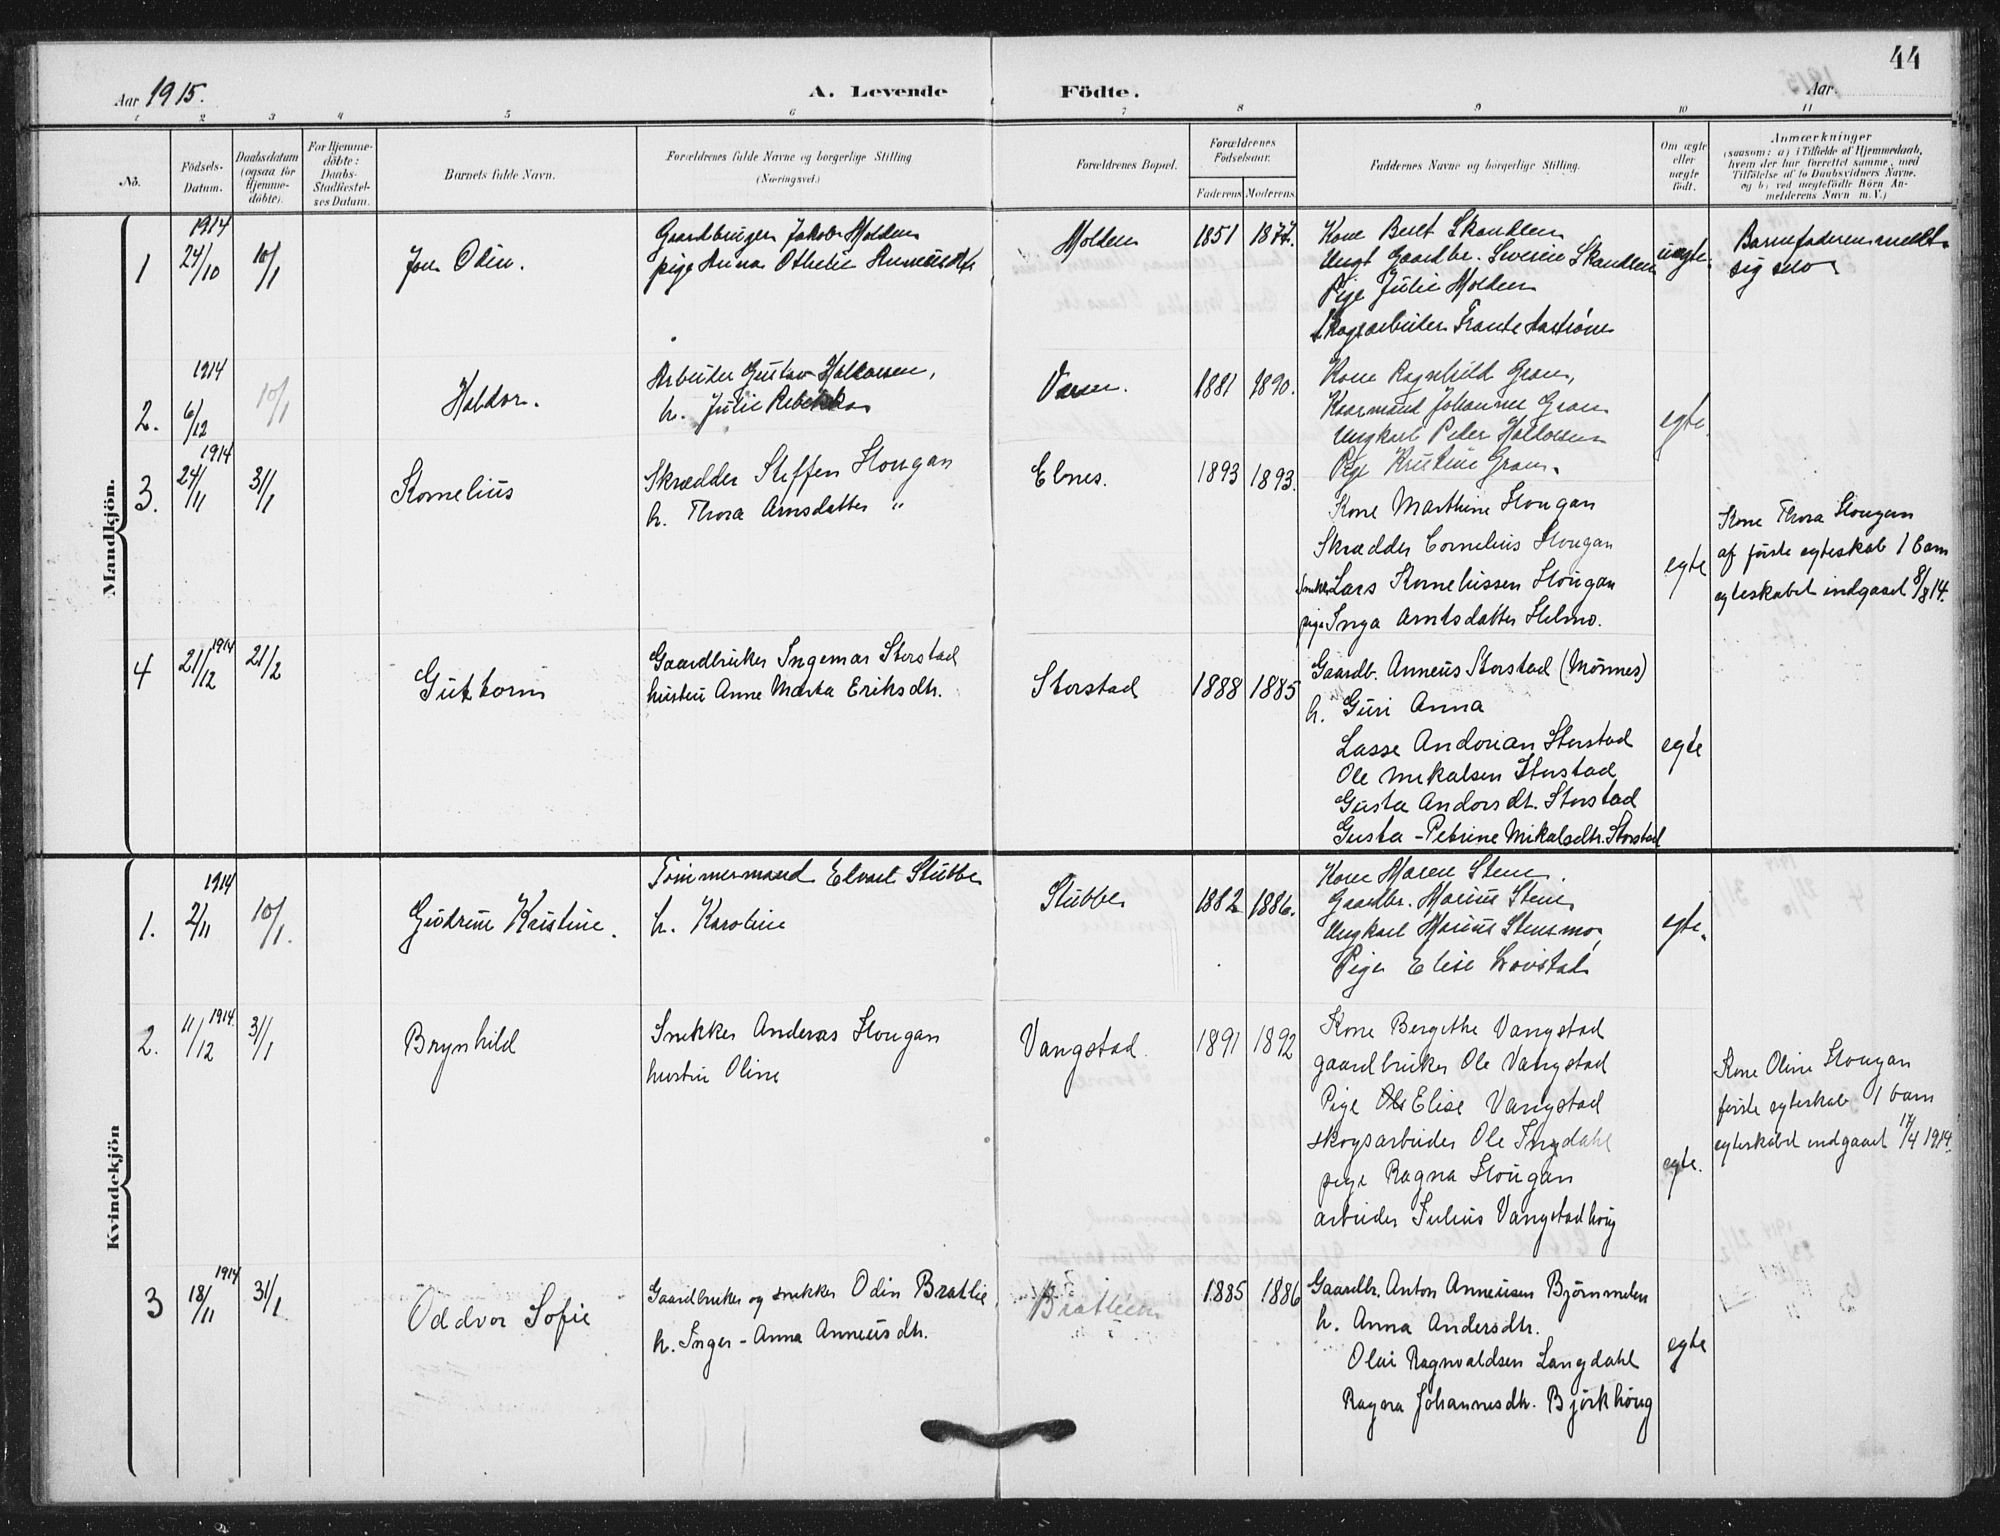 44
Aar 1915.
A. Levende Födte.
Aar
1 2 3 4 5 6 7 8 9 10 11
No.
Födsels-Datum.
Daabsdatum (ogsaa for Hjemme-döbte).
For Hjemme-döbte: Daabs-Stadfæstel-ses Datum.
Barnets fulde Navn.
Forældrenes fulde Navne og borgerlige Stilling
(Næringsvei.)
Forældrenes Bopæl.
Forældrenes Födselsaar.
Faderens Moderens.
Faddernes Navne og borgerlige Stilling.
Om ægte eller uægte födt.
Anmærkninger
(saasom: a) i Tilfælde af Hjemmedaab,
hvem der har forrettet samme, med
Tilföielse af to Daabsvidners Navne,
og b) ved uægtefödte Börn An-
melderens Navn m. V.)
Mandkjön.
1 1914 24/10 10/1 Jon Odin.
Gaardbruger Jakob Molden
pige Anna Othelie
Molden 1851 1877.
Kone Beret Skandlen
Ungt Gaardbr. Severin Skandlen
Pige Julie Molden
Skogsarbeider
uegte.
Barnefaderen meldt
sig selv
2. 1914 6/12 10/1 Haldor.
Arbeider Gustav
h. Julie Rebekka
1881 1890.
Kone Ragnhild Gran,
Kaarmand Johannes Gran
Ungkarl Peder
Pige Kristine Gran.
egte.
3. 1914 24/11 31/1 Kornelius
Skrædder Steffen Hougan
h. Thora Arnsdatter "
Elnes. 1893 1893.
Kone Marthine Hougan
Skrædder Cornelius Hougan
Snekker Lars Kornelissen Hougan
pige Inga Arntsdatter Helmo.
egte
Kone Thora Hougan
af förste egteskab 1 barn
egteskabet indgaaet 8/8 14.
4 21/12 1914 21/2 Guttorm
Gaardbruker Ingemar Storstad
hustru Anne Marta Eriksdtr.
Storstad 1888 1885
Gaardb. Anneus Storstad (Mönnes)
h. Guri Anna
Lasse Andorian Storstad
Ole Mikalsen Storstad
Gusta Andorsdt. Storstad
Gusta - Petrine Mikalsdtr. Storstad
egte
Kvindekjön
1. 1914 2/11 10/1. Gudrun Kristine.
Tömmermand Edvart Stubbe
h. Karoline
Stubbe 1882 1886.
Kone Maren Sten.
Gaardbr. Marius Sten
Ungkarl Marius Stensmo,
Pige Elise Lovstad
egte.
2. 11/12 1914. 31/1 Brynhild
Snekker Andreas Hougan
hustru Oline
Vangstad. 1891 1892
Kone Bergithe Vangstad
gaardbruker Ole Vangstad
Pige Elise Vangstad
skogsarbeider Ole Ingdahl
pige Ragna Hougan
arbeider Julius Vangstadhaug
egte.
Kone Oline Hougan
förste egteskab 1 barn
egteskabet indgaaet 17/4 1914.
3 18/11 1914 31/1 Oddvor Sofie
Gaardbruker og snekker Odin Bratlie,
h. Inger - Anna Anneusdtr.
Bratlien 1885 1886
Gaardbr. Anton Anneusen Björnmelen
h. Anna Andersdtr.
Olav Ragnvaldsen Langdahl
Ragna Johannesdtr. Björkhöug
egte